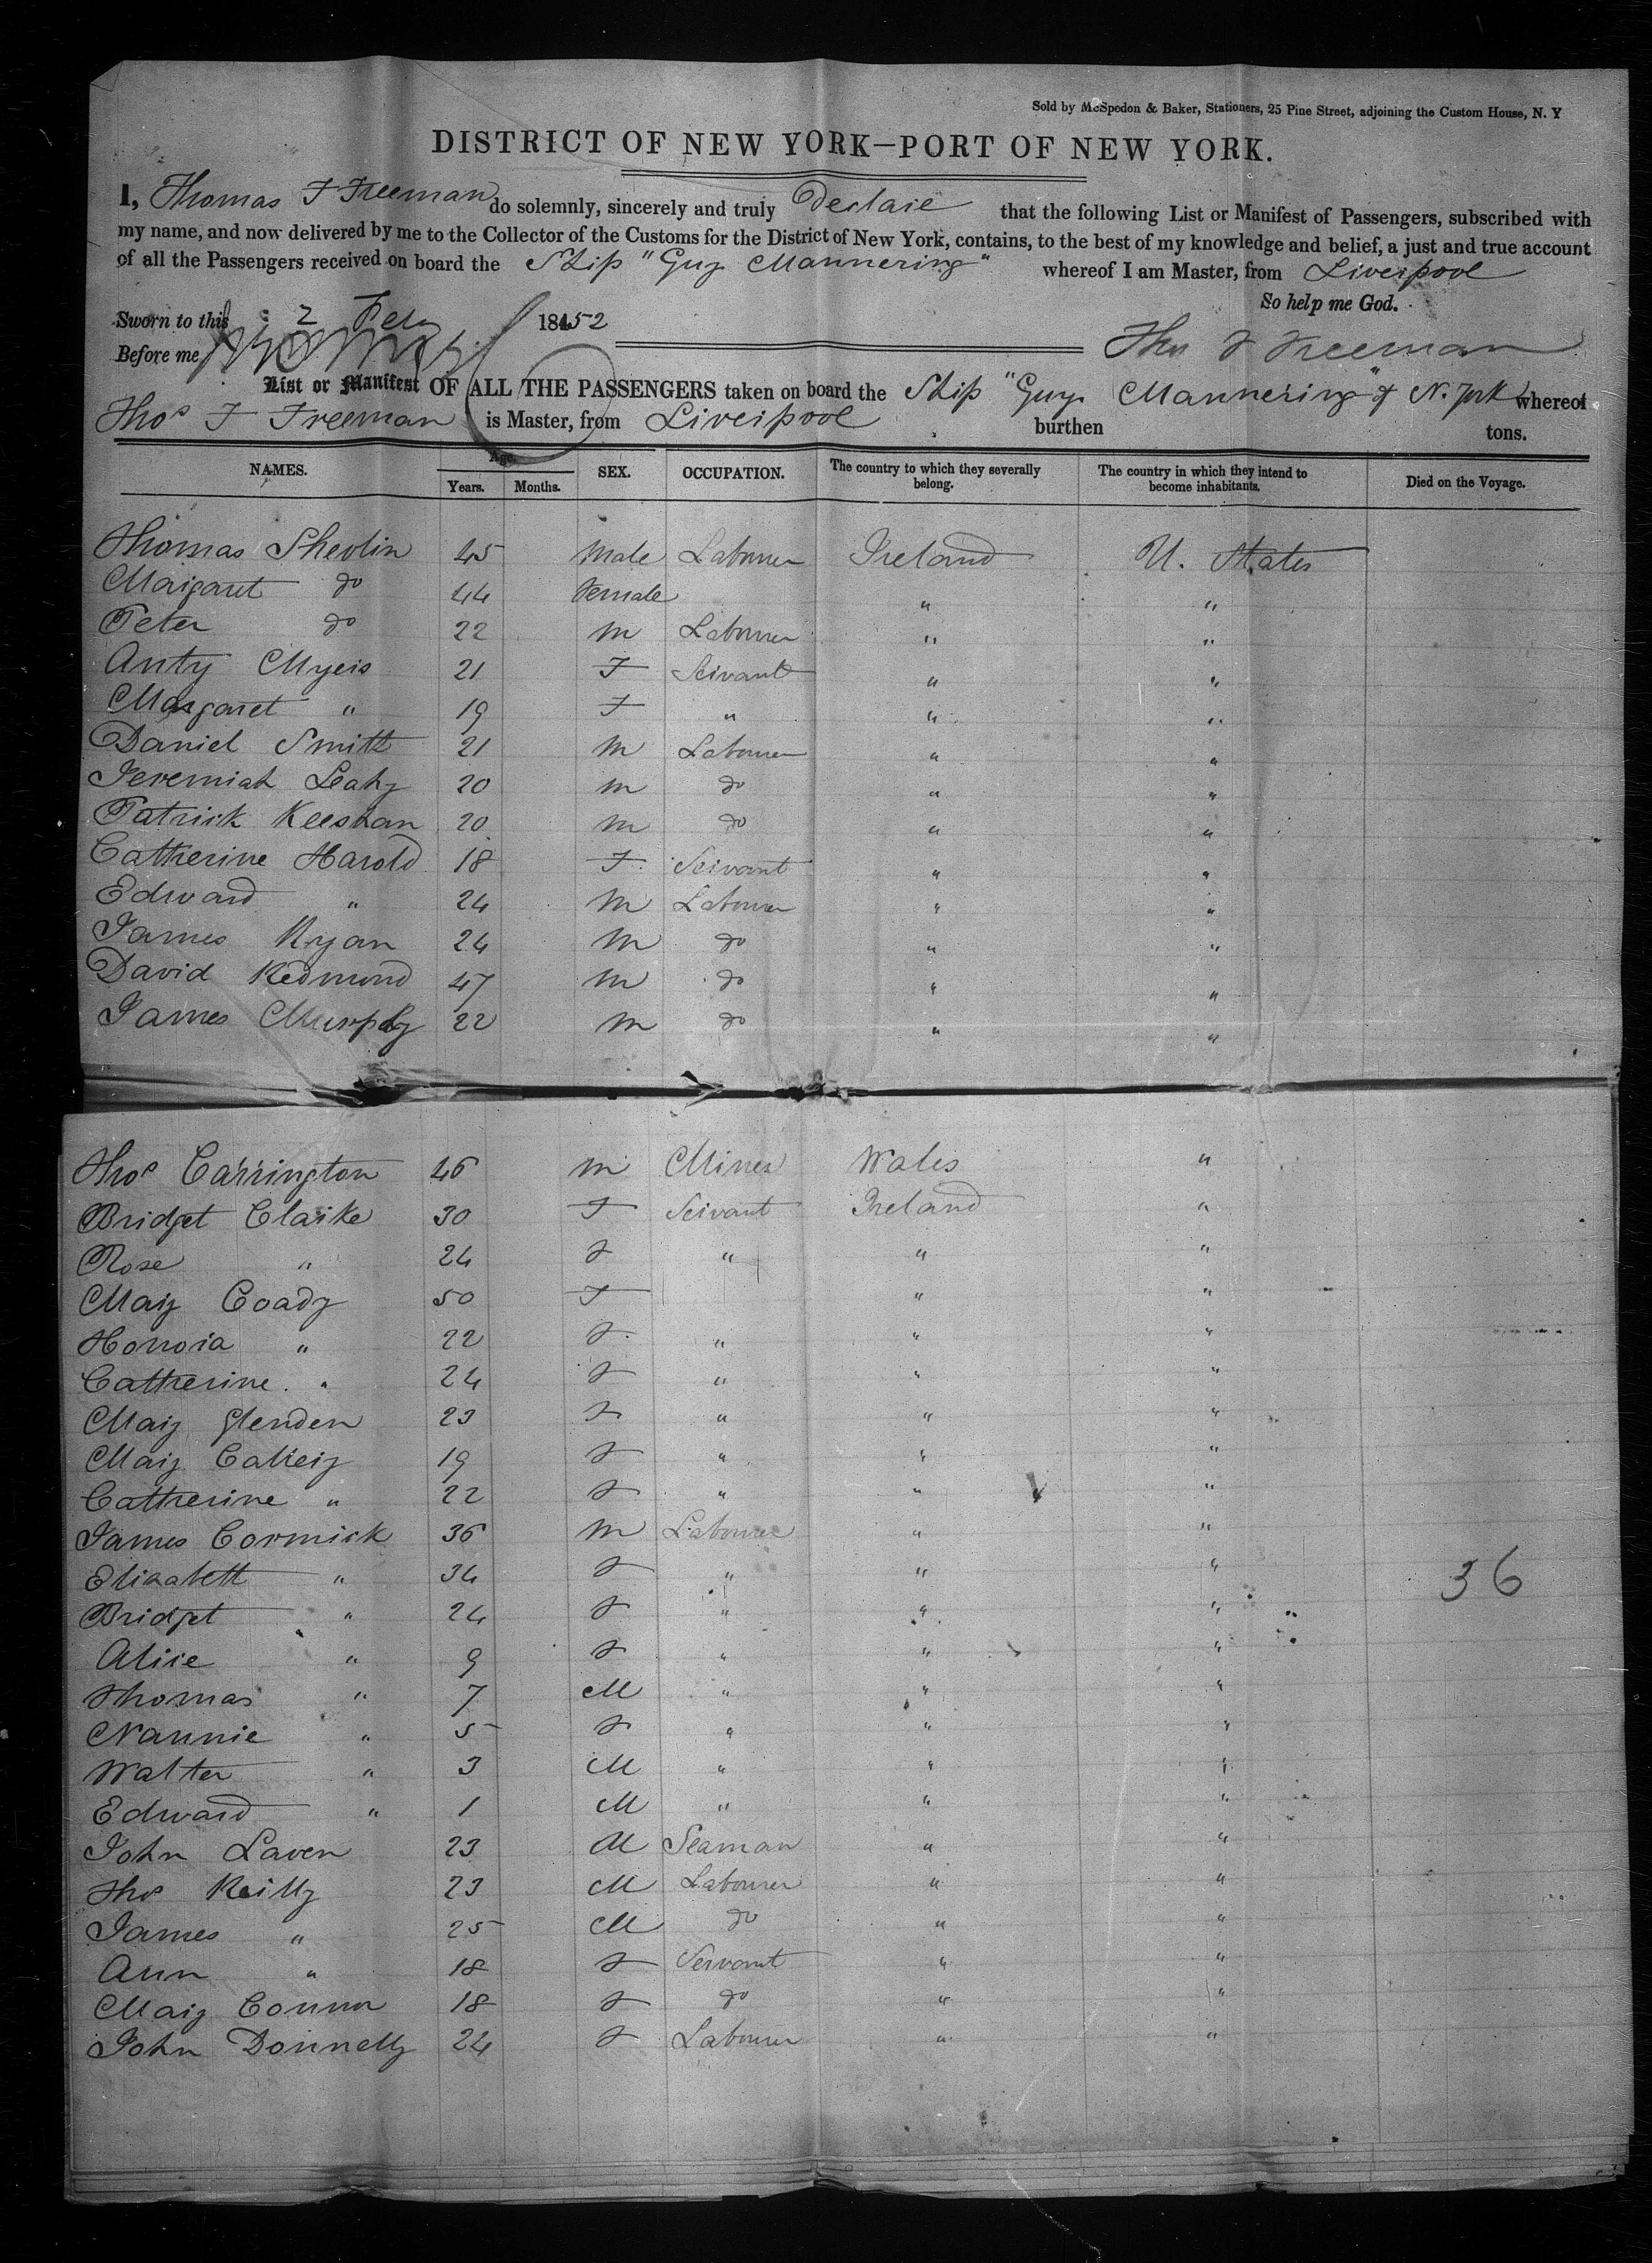 Sold by McSpedon & Baker, Stationers, 25 Pine Street, adjoining the Custom House, N. Y
DISTRICT OF NEW YORK—PORT OF NEW YORK.
I, Thomas F Freeman do solemnly, sincerely and truly Declare that the following List or Manifest of Passengers, subscribed with
my name, and now delivered by me to the Collector of the Customs for the District of New York, contains, to the best of my knowledge and belief, a just and true account
of all the Passengers received on board the Ship "Guy Mannering" whereof I am Master, from Liverpool
So help me God.
Sworn to this 2 Feby 1852
Before me Thos F Freeman
List or Manifest OF ALL THE PASSENGERS taken on board the Ship "Guy Mannering" of N. York whereof
Thos F Freeman is Master, from Liverpool burthen tons.
NAMES. Age. Years. Months. SEX. OCCUPATION. The country to which they severally belong. The country in which they intend to become inhabitants. Died on the Voyage.
Thomas Shevlin 45 Male Labourer Ireland U. States
Margaret do 44 Female " "
Peter do 22 M Labourer " "
Anty Myers 21 F Servant " "
Margaret " 19 F " " "
Daniel Smith 21 M Labourer " "
Jeremiah Leahy 20 M do " "
Patrick Keeshan 20 M do " "
Catherine Harold 18 F Servant " "
Edward " 24 M Labourer " "
James Ryan 24 M do " "
David Redmond 47 M do " "
James Murphy 22 M do " "
Thos Carrington 46 M Miner Wales "
Bridget Clarke 30 F Servant Ireland "
Rose " 24 F " " "
Mary Coady 50 F " "
Honora " 22 F " " "
Catherine " 24 F " " "
Mary Glenden 23 F " " "
Mary 19 F " " "
Catherine " 22 F " " "
James Cormick 36 M Labourer " "
Elizabeth " 34 F " " "
Bridget " 24 F " " "
Alice " 9 F " " "
Thomas " 7 M " " "
Nannie " 5 F " " "
Walter " 3 M " " "
Edward " 1 M " " "
John Laven 23 M Seaman " "
Thos Reilly 23 M Labourer " "
James " 25 M do " "
Ann " 18 F Servant " "
Mary Connor 18 F do " "
John Donnelly 24 F Labourer " "
36